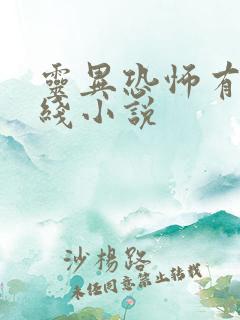 靈異恐怖有
綫小說
沙楊路
未经同意禁止转载